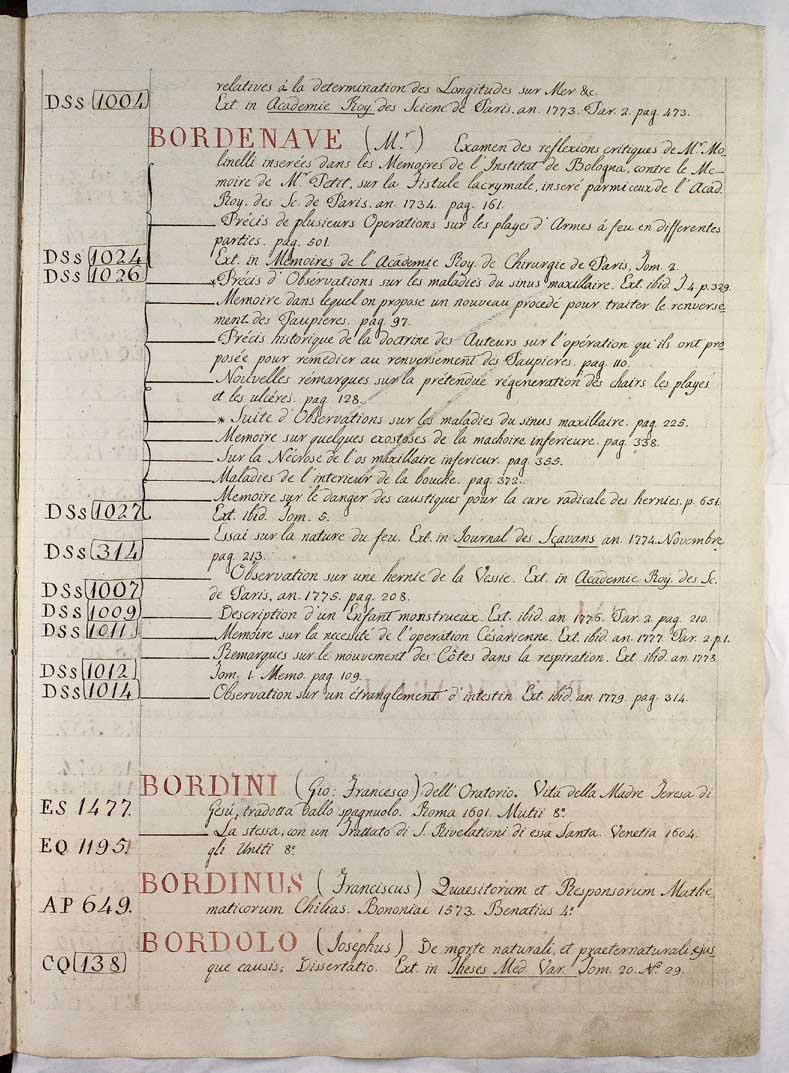 relatives á la determination des Longitudes sur Mer &c.
DSs 1004 Ext in Academie Roy. des Scienc de Paris. an. 1773. Par. 2. pag. 473.
BORDENAVE (M.r) Examen des reflexions critiques de M.r Mo-
linelli inserées dans les Memoires de l'Institat de Bologna, contre le Me-
moire de M.r Petit, sur la Fistule lacrymale, inseré parmi ceux de l'Acad.
Roy. des Sc. de Paris. an. 1734. pag. 161.
Précis de plusieurs Operations sur les playes d'Armes á feu en differentes
parties. pag. 501.
DSs 1024 Ext. in Memoires de l'Academie Roy. de Chirurgie de Paris, Tom. 2.
DSs 1026 * Précis d'Obsérvations sur les maladies du sinus maxillaire. Ext. ibid. T. 4. p. 329.
Memoire dans lequel on propose un nouveau procedé pour traiter le renverse-
ment des Paupieres. pag. 97.
Précis historique de la doctrine des Auteurs sur l'opération qu'ils ont pro-
posée pour remedier au renversement des Paupieres. pag. 110.
Nouvelles rémarques sur la prétendue régeneration des chairs les playes
et les ulcéres. pag. 128.
* Suite d'Observations sur les maladies du sinus maxillaire. pag. 225.
Memoire sur quelques exostoses de la machoire inferieure. pag. 338.
Sur la Nécrose de l'os maxillaire inferieur. pag. 355.
Maladies de l'interieur de la bouche. pag. 372.
Memoire sur le danger des caustiques pour la cure radicale des hernies. p. 651.
DSs 1027 Ext. ibid. Tom. 5.
Essai sur la nature du feu. Ext. in Journal des Sçavans an. 1774. Novembre
DSs 314 pag. 213.
Observation sur une hernie de la Vessie. Ext. in Academie Roy. des Sc.
DSs 1007 de Paris, an. 1775. pag. 208.
DSs 1009 Description d'un Enfant monstrueux. Ext. ibid. an 1776. Par. 2. pag. 210.
DSs 1011 Memoire sur la necésité de l'operation Césarienne. Ext. ibid. an 1777. Par. 2. p. 1.
Remarques sur le mouvement des Côtes dans la respiration. Ext ibid. an 1778.
DSs 1012 Tom. 1. Memo. pag. 109.
DSs 1014 Observation sur un étranglement d'intestin. Ext. ibid. an 1779. pag. 314.
BORDINI (Gio: Francesco) dell'Oratorio. Vita della Madre Teresa di
ES 1477. Gesú, tradotta dallo spagnuolo. Roma 1601. Mutii 8.o
La stessa, con un Trattato di S. Rivelationi di essa Santa. Venetia 1604.
EQ 1195. gli Uniti 8.o
BORDINUS (Franciscus) Quaesitorum et Responsorum Mathe-
AP 649. maticorum Chilias. Bononiae 1573. Benatius 4.o
BORDOLO (Josephus) De morte naturali, et praeternaturali, ejus-
CQ 138 que causis; Dissertatio. Ext. in Theses Med. Var. Tom. 20. N.o 29.